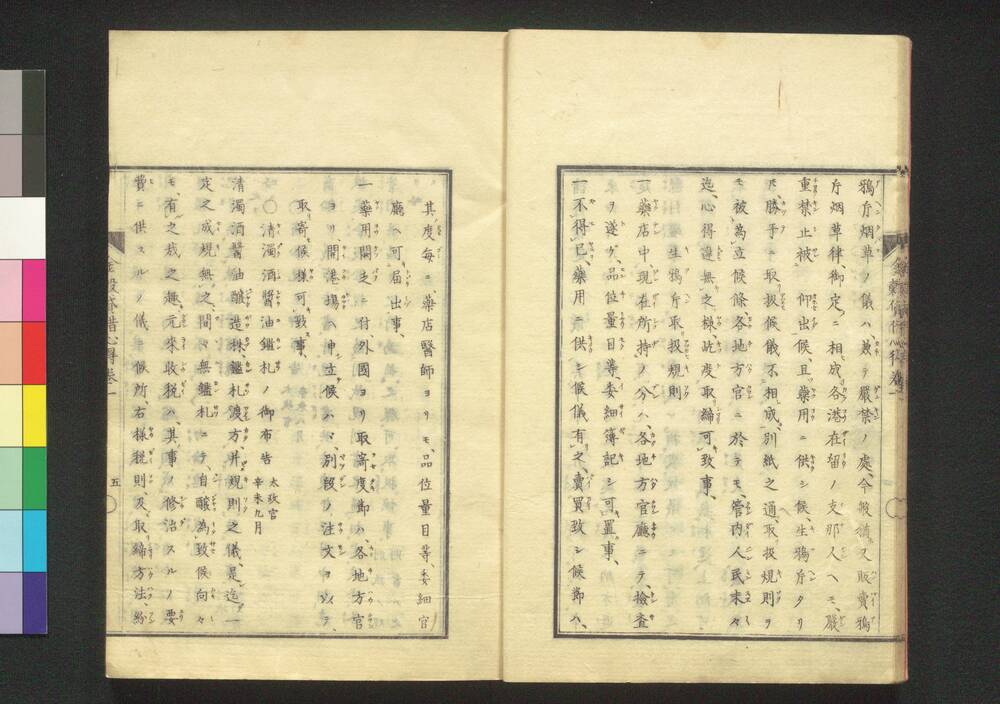 鴉片烟草ノ儀ハ兼テ嚴禁ノ處、今般猶又販賣鴉
片烟草律、御定ニ相成、各港在留ノ支那人ヘモ、嚴
重禁止被　仰出候、且藥用ニ供シ候、生鴉片タリ
𪜈、勝手ニ取扱候儀不相成、別紙之通、取扱規則ヲ
モ被為立候條、各地方官ニ於テモ、管内人民末々
迄、心得違無之様、屹度取締可致事、
生鴉片取扱規則
一藥店中、現在所持ノ分ハ、各地方官廳ニテ、撿査
ヲ遂ケ、品位量目等、委細簿記シ可置事、
一不得已、藥用ニ供シ候儀有之、賣買致シ候節ハ、
其度每ニ、藥店醫師ヨリモ、品位量目等、委細官
廳ヘ可届出事、
一藥用闕乏ニ付、外國ヨリ取寄度節ハ、各地方官
ヨリ、開港場ヘ申立候ハヽ、別段ノ注文ヲ以テ、
取寄候様可致事、
○清濁酒醬油鑑札ノ御布告　太政官　辛未九月
清濁酒醬油釀造株、鑑札渡方、并規則之儀、是迄一
定之成規無之、間々無鑑札ニテ、自釀為致候向々
モ、有之哉之趣、元來收税ハ、其事ノ修治スルノ要
費ニ供スルノ儀ニ候所、右様税則及取締方法、紛
五